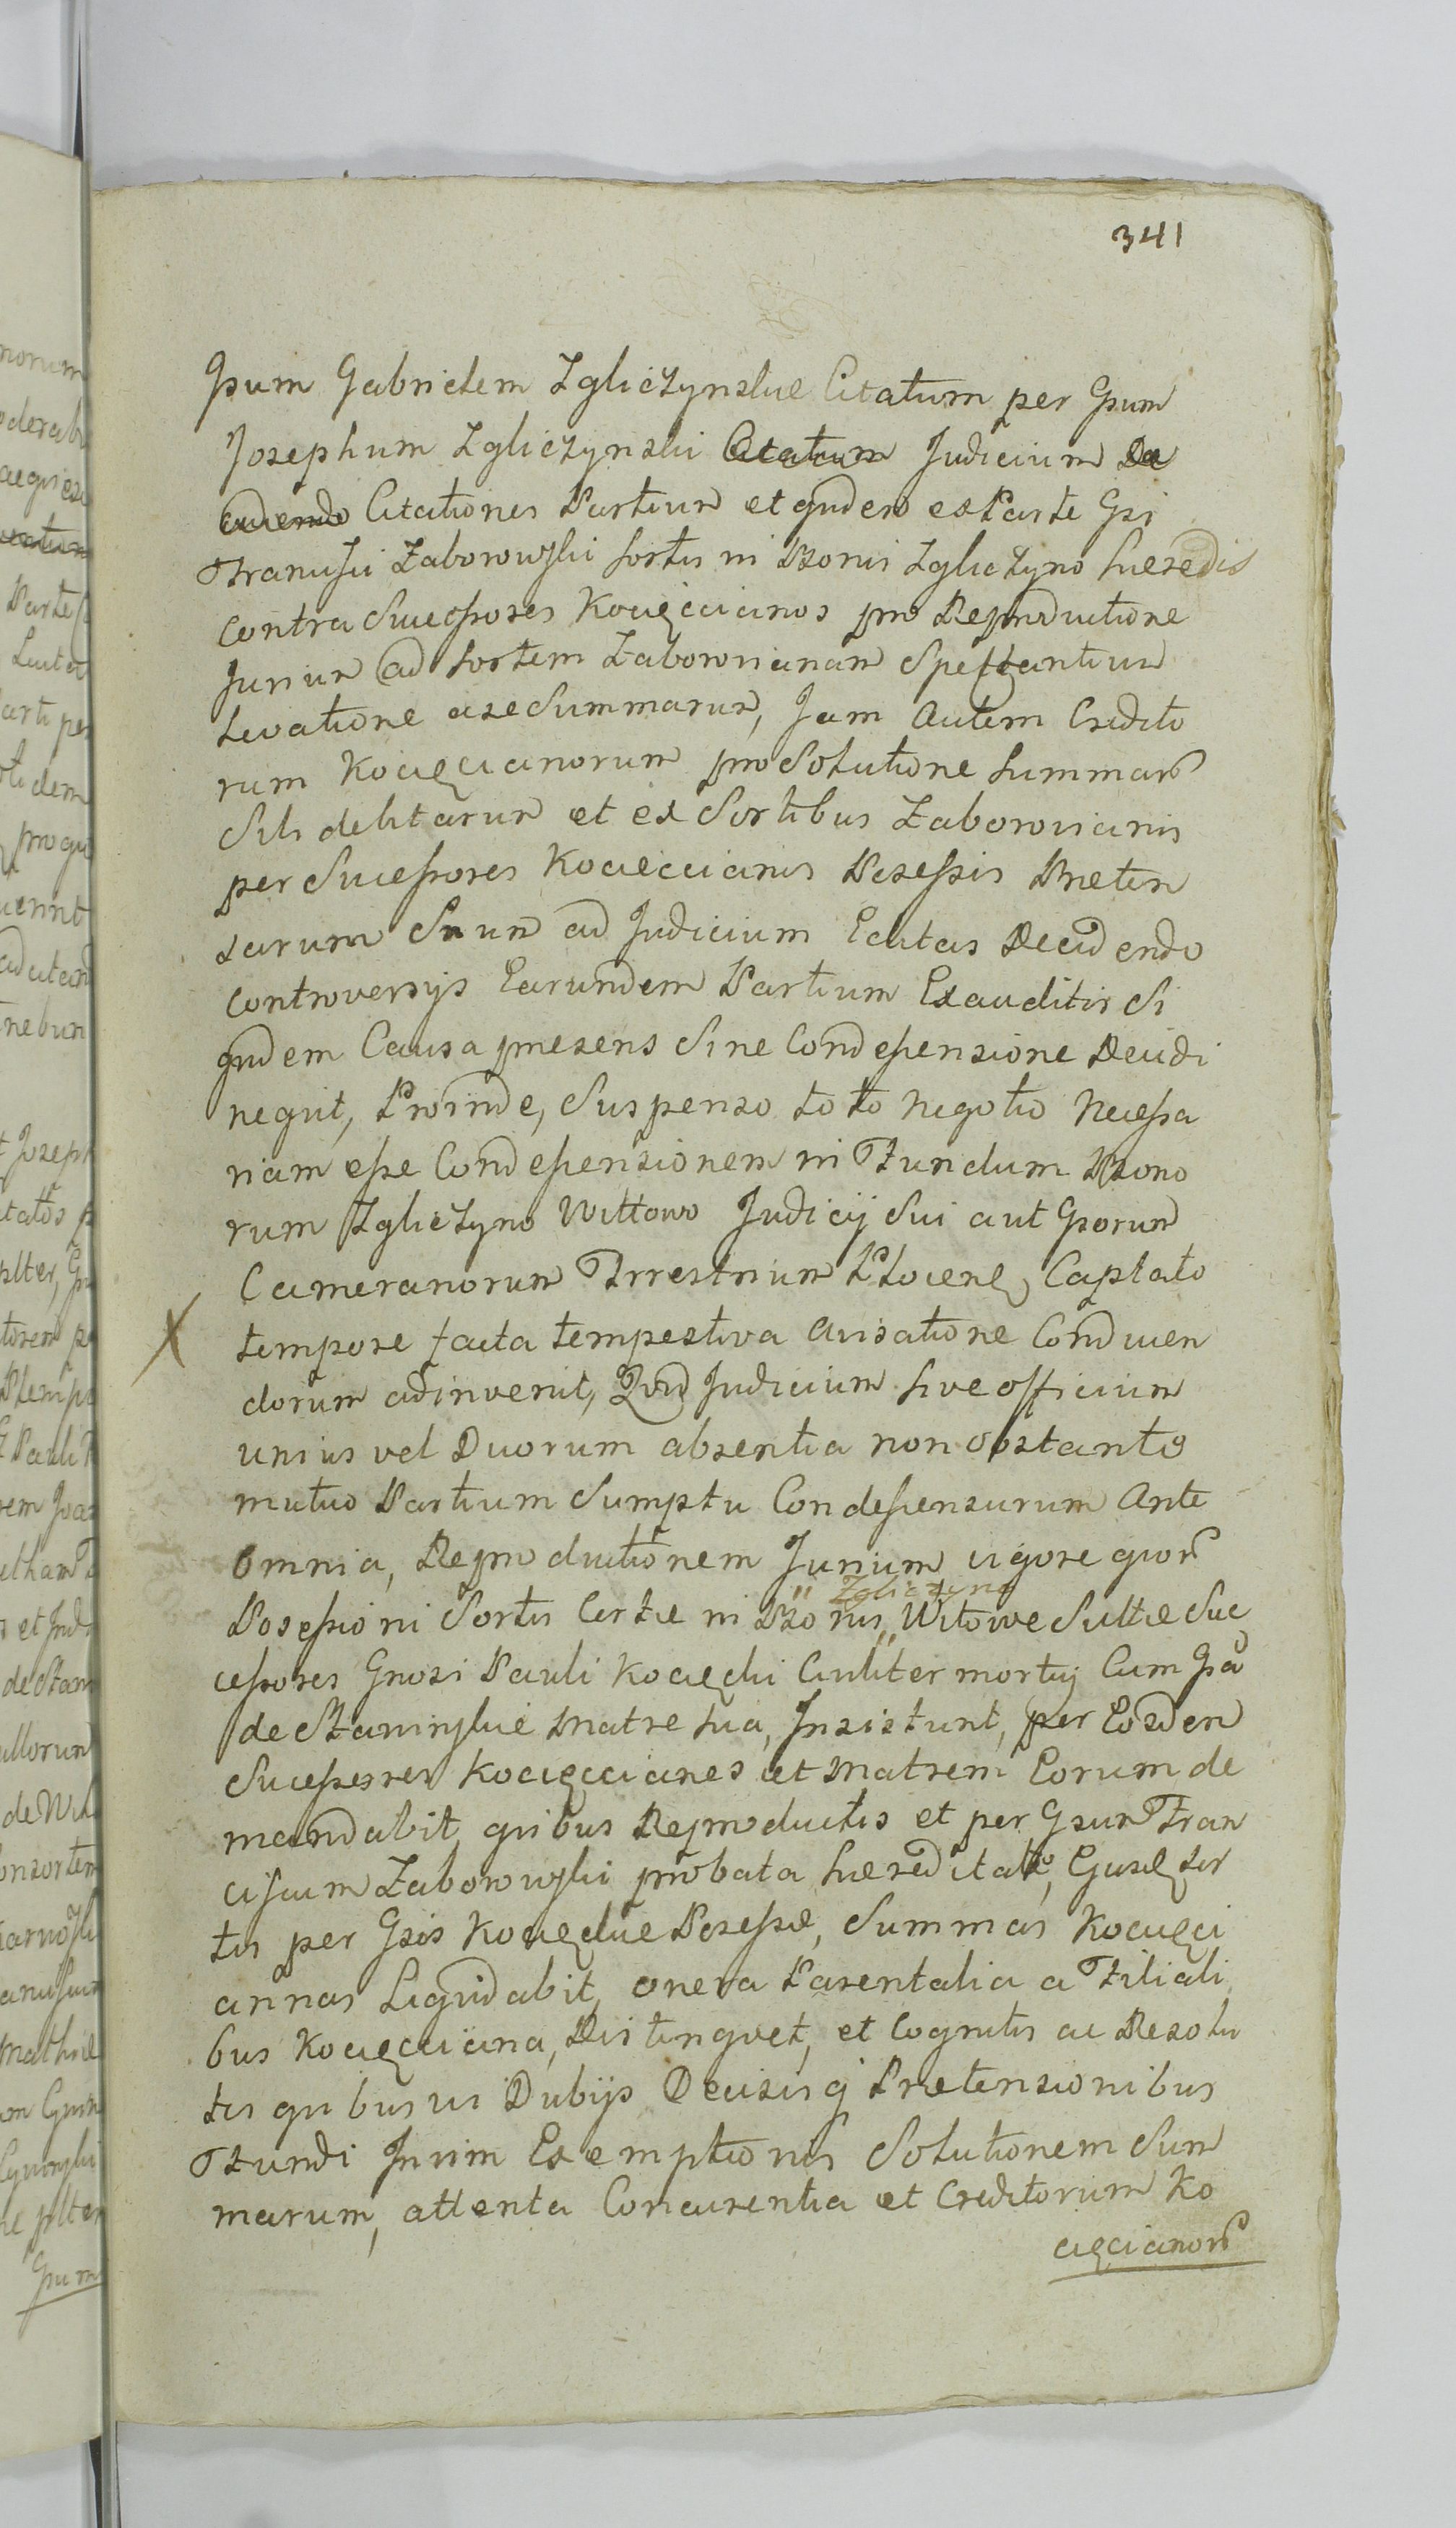 341
Gsum Gabrielem Zgliczynskie Citatum per Gsum
Josephum Zgliczynski Citatum Judicium De
cidendo Citationes Partium et quidem ex Parte Gsi
Francisci Zaborowski Sortis in Bonis Zgliczyno hæredis
contra Successores Kocięccianos pro Reproductione
Jurium ad Sortem Zaborovianam Spectantium
Levatione Summarum, Jam Autem Credito
rum Kocięcianorum pro Solutione Summarum
Sibi debitarum et ex Sortibus Zaborovianis
per Successores Kocięccianos Possessis Præten
sarum Suum ad Judicium Editas Decidendo
controversijs Earundem Partium Exauditis Si
quidem Causa præsens Sine Condescensione Decidi
nequit, Proinde, Suspenso toto negotio Necessa
riam esse Condescensionem in Fundum Bono
rum Zgliczyno Wittowo Judicij Sui aut Gsorum
Camerariorum Trrestrium Plocens, Captato
X tempore facta tempestiva Avisatione Conducen
dorum adinvenit, Quod Judicium sive officium
unius vel Duorum absentia non obstante
mutuo Partium Sumptu Condescensurum Ante
Omnia, Reproductionem Jurium vigore quor
Zgliczyno
Possessioni Sortis Certæ in Bonis Witowie Sultæ Suc
cessores Gnosi Pauli Kocięcki Civiliter mortuj Cum Gsa
de Staninskie Matre sua, Insistunt, per Eosdem
Successores Kocięccianos et Matrem Eorum de
mandabit, quibus Reproductis et per Gsum Fran
ciscum Zaborowski probata hæreditate, Ejusq Sor
tis per Gsos Kocięckie Possessæ, Summas Kocięci
annas Liquidabit, onera Parentalia a Filiali
bus Kocięcciana, Distinguet, et Cognitis ac Resolu
tis quibusvis Dubijs Decisisq Prætensionibus
Fundi Jurium Exemptionis Solutionem Sum
marum, attenta Concurentia et Creditorum Ko
cięcianor